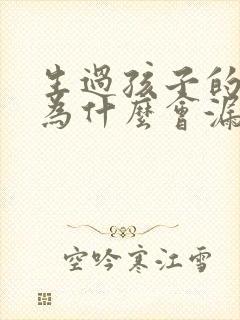 生過孩子的
為什麼會漏
空吟寒江雪